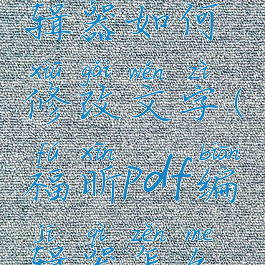 辑器如何
xiū gǎi wén zì
修改文字(
fú xīn biān
福昕pdf编
jí qì zěn me
辑器怎么